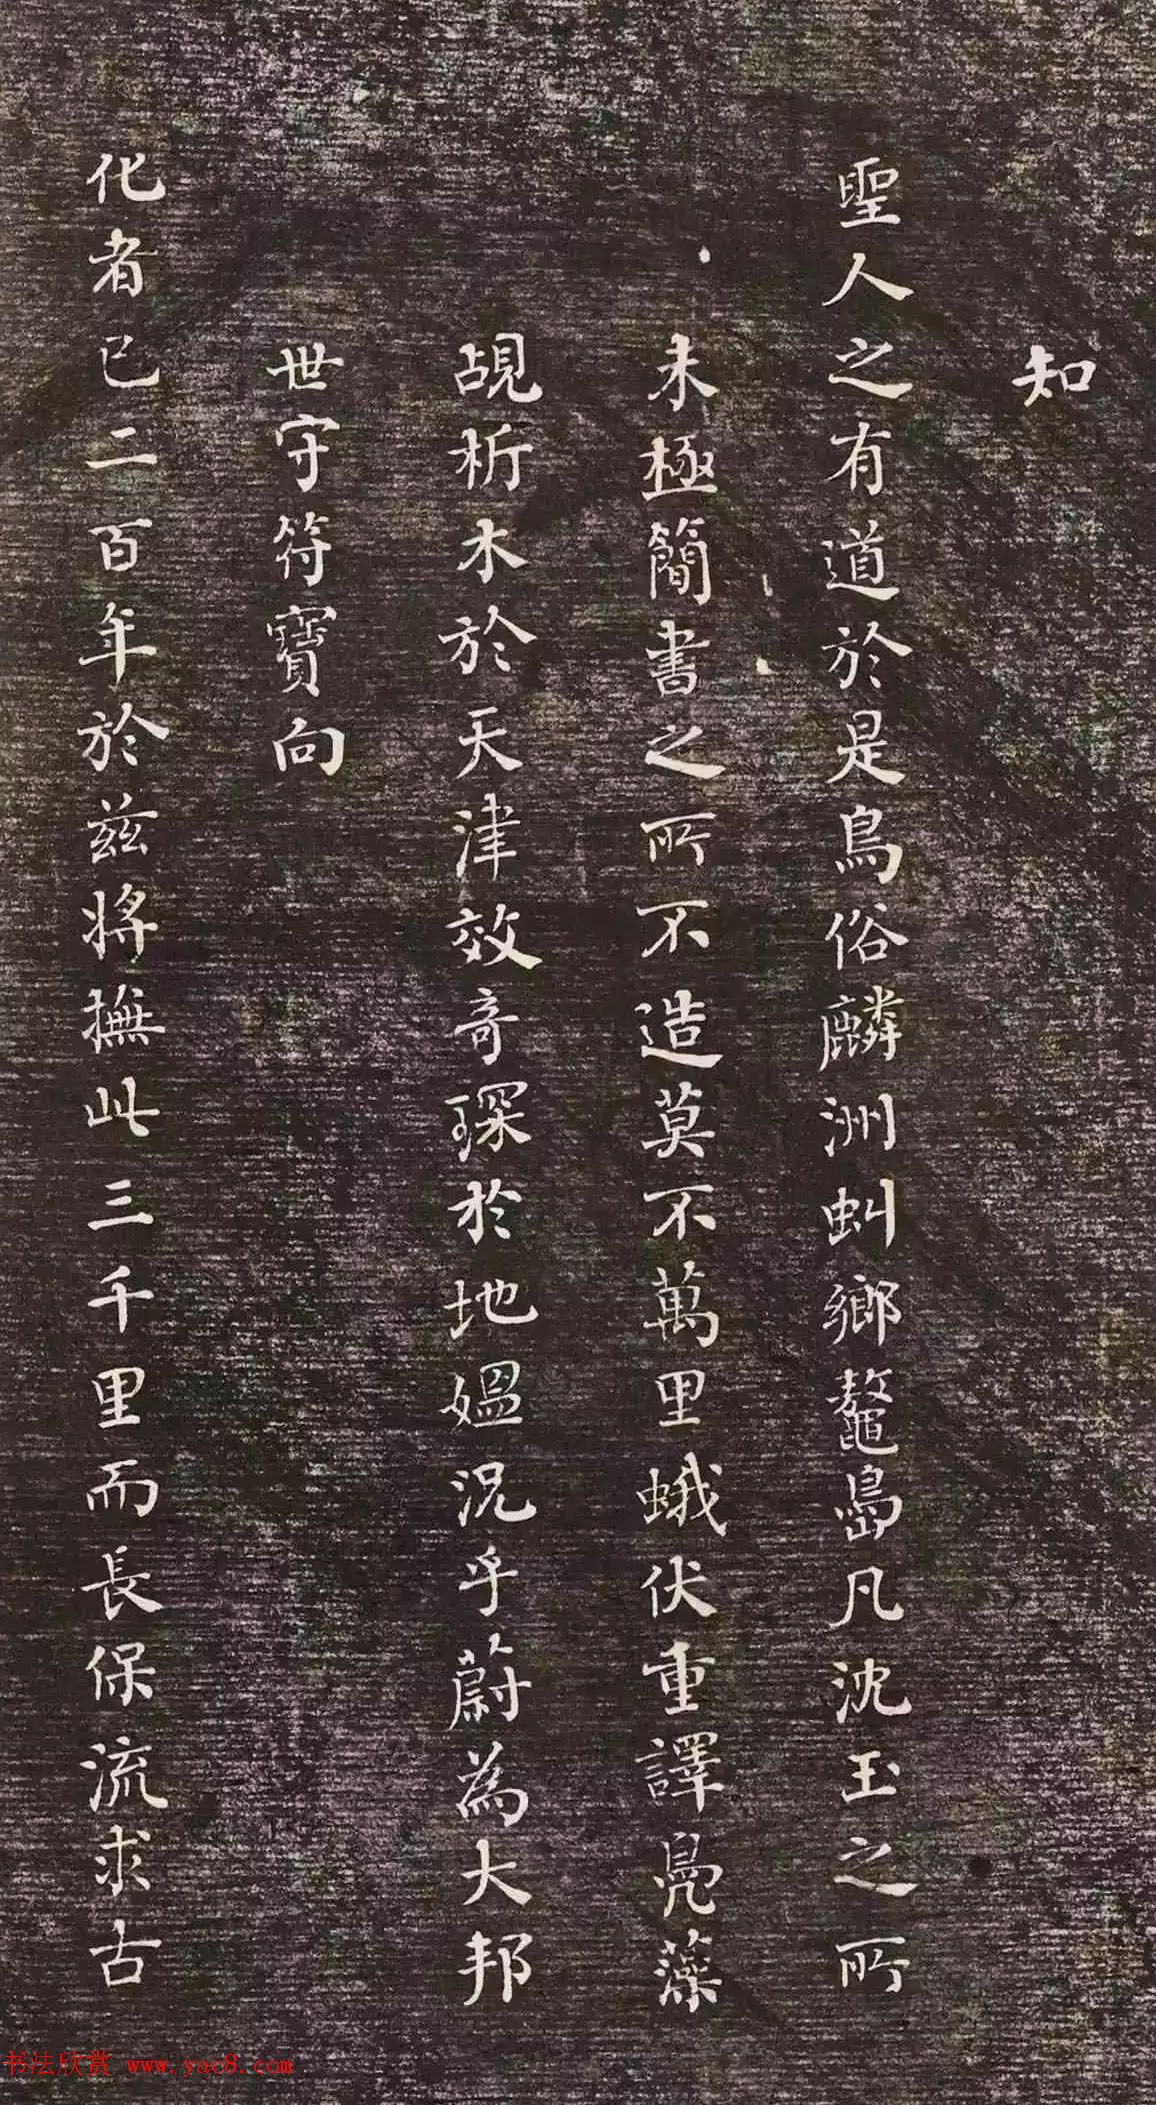 知
聖人之有道於是鳥俗麟洲虯鄉鼇島凡沈玉之所
未極簡書之所不造莫不萬里蛾伏重譯鳧藻
覘析木於天津效奇琛於地媼況乎蔚為大邦
世守符寶向
化者已二百年於茲將撫此三千里而長保流求古
书法欣赏 www.yac8.com